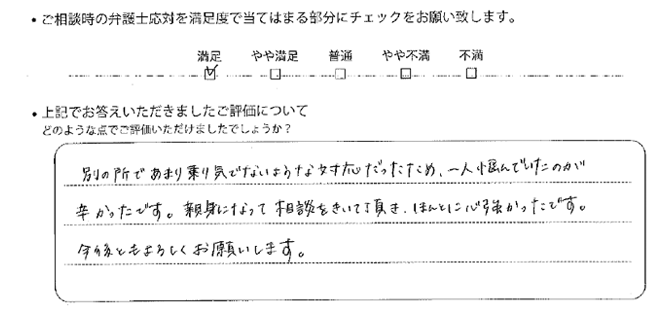 ・ご相談時の弁護士応対を満足度で当てはまる部分にチェックをお願い致します。
満足 やや満足 普通 やや不満 不満
☑ □ □ □ □
・上記でお答えいただきましたご評価について
どのような点でご評価いただけましたでしょうか？
別の所であまり乗り気でないような対応だったため、一人悩んでいたのが
辛かったです。親身になって相談をきいて頂き、ほんとに心強かったです。
今後ともよろしくお願いします。